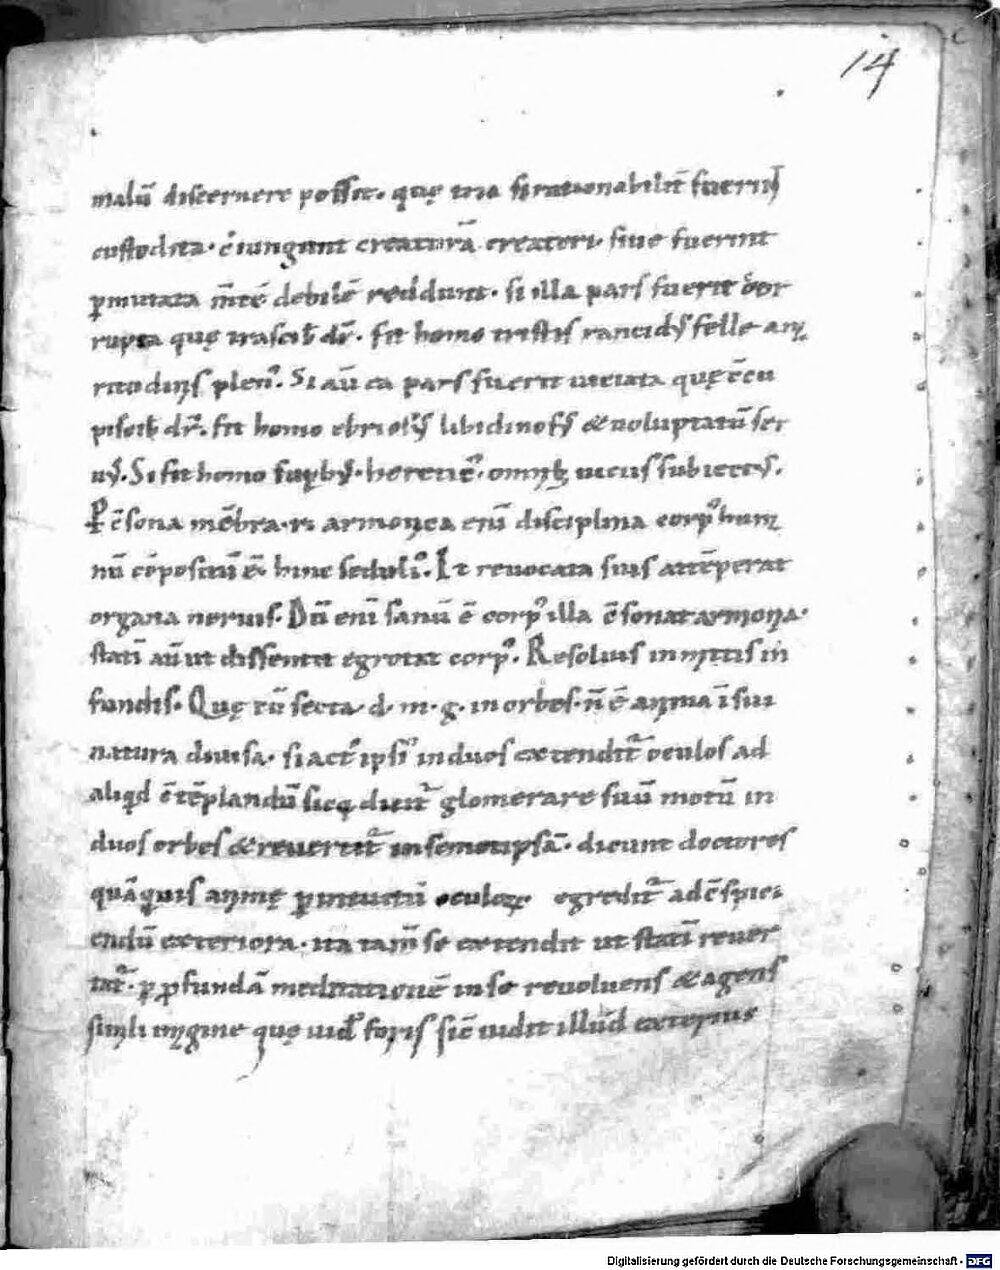 14
malū discernere possit. quę tria si rationabilit̄ fuerint
custodita. c̄iungunt creaturā creatori. siue fuerint
ꝑmutata m̄tē debilē reddunt. si illa pars fuerit cor
rupta quę irascib̄ dr̄. fit homo tristis rancidꝰ felle ama
ritudinis plenꝰ. Si aū ea pars fuerit uiciata quę c̄cu
piscib̄ dr̄. fit homo ebriosꝰ libidinosꝰ & uoluptatū ser
uꝰ. Si fit homo suꝑbꝰ. hereticꝰ. omībꝫ uiciis subiectꝰ.
P c̄sona mēbra. armonica enī disciplina corpꝰ huma
nū cōpositū ē. hinc seduliꝰ. Et reuocata suis attēperat
organa neruis. Dū enī sanū ē corpꝰ illa c̄sonat armonia.
statī aū ut dissentit egrotat corpꝰ. Resoluis in
fundis. Quę cū secta. d. m. g. in orbes. n̄ ē anima ī sui
natura diuisa. si actꝰ ipsiꝰ in duos extendit᷑ oculos ad
aliqd c̄tēplandū sicq; dicit᷑ glomerare suū motū in
duos orbes & reuertit᷑ in semetipsā. dicunt doctores
quāquis animę ꝑ intuitū oculoꝝ egredit᷑ ad c̄spici
endū exteriora. ita tam̄ se extendit ut statī reuer
tat᷑. ꝑ ꝓfundā meditationē in se reuoluens & agens
simili imagine quę uid& foris sic̄ uidit illud exterius
Digitalisierung gefördert durch die Deutsche Forschungsgemeinschaft - DFG